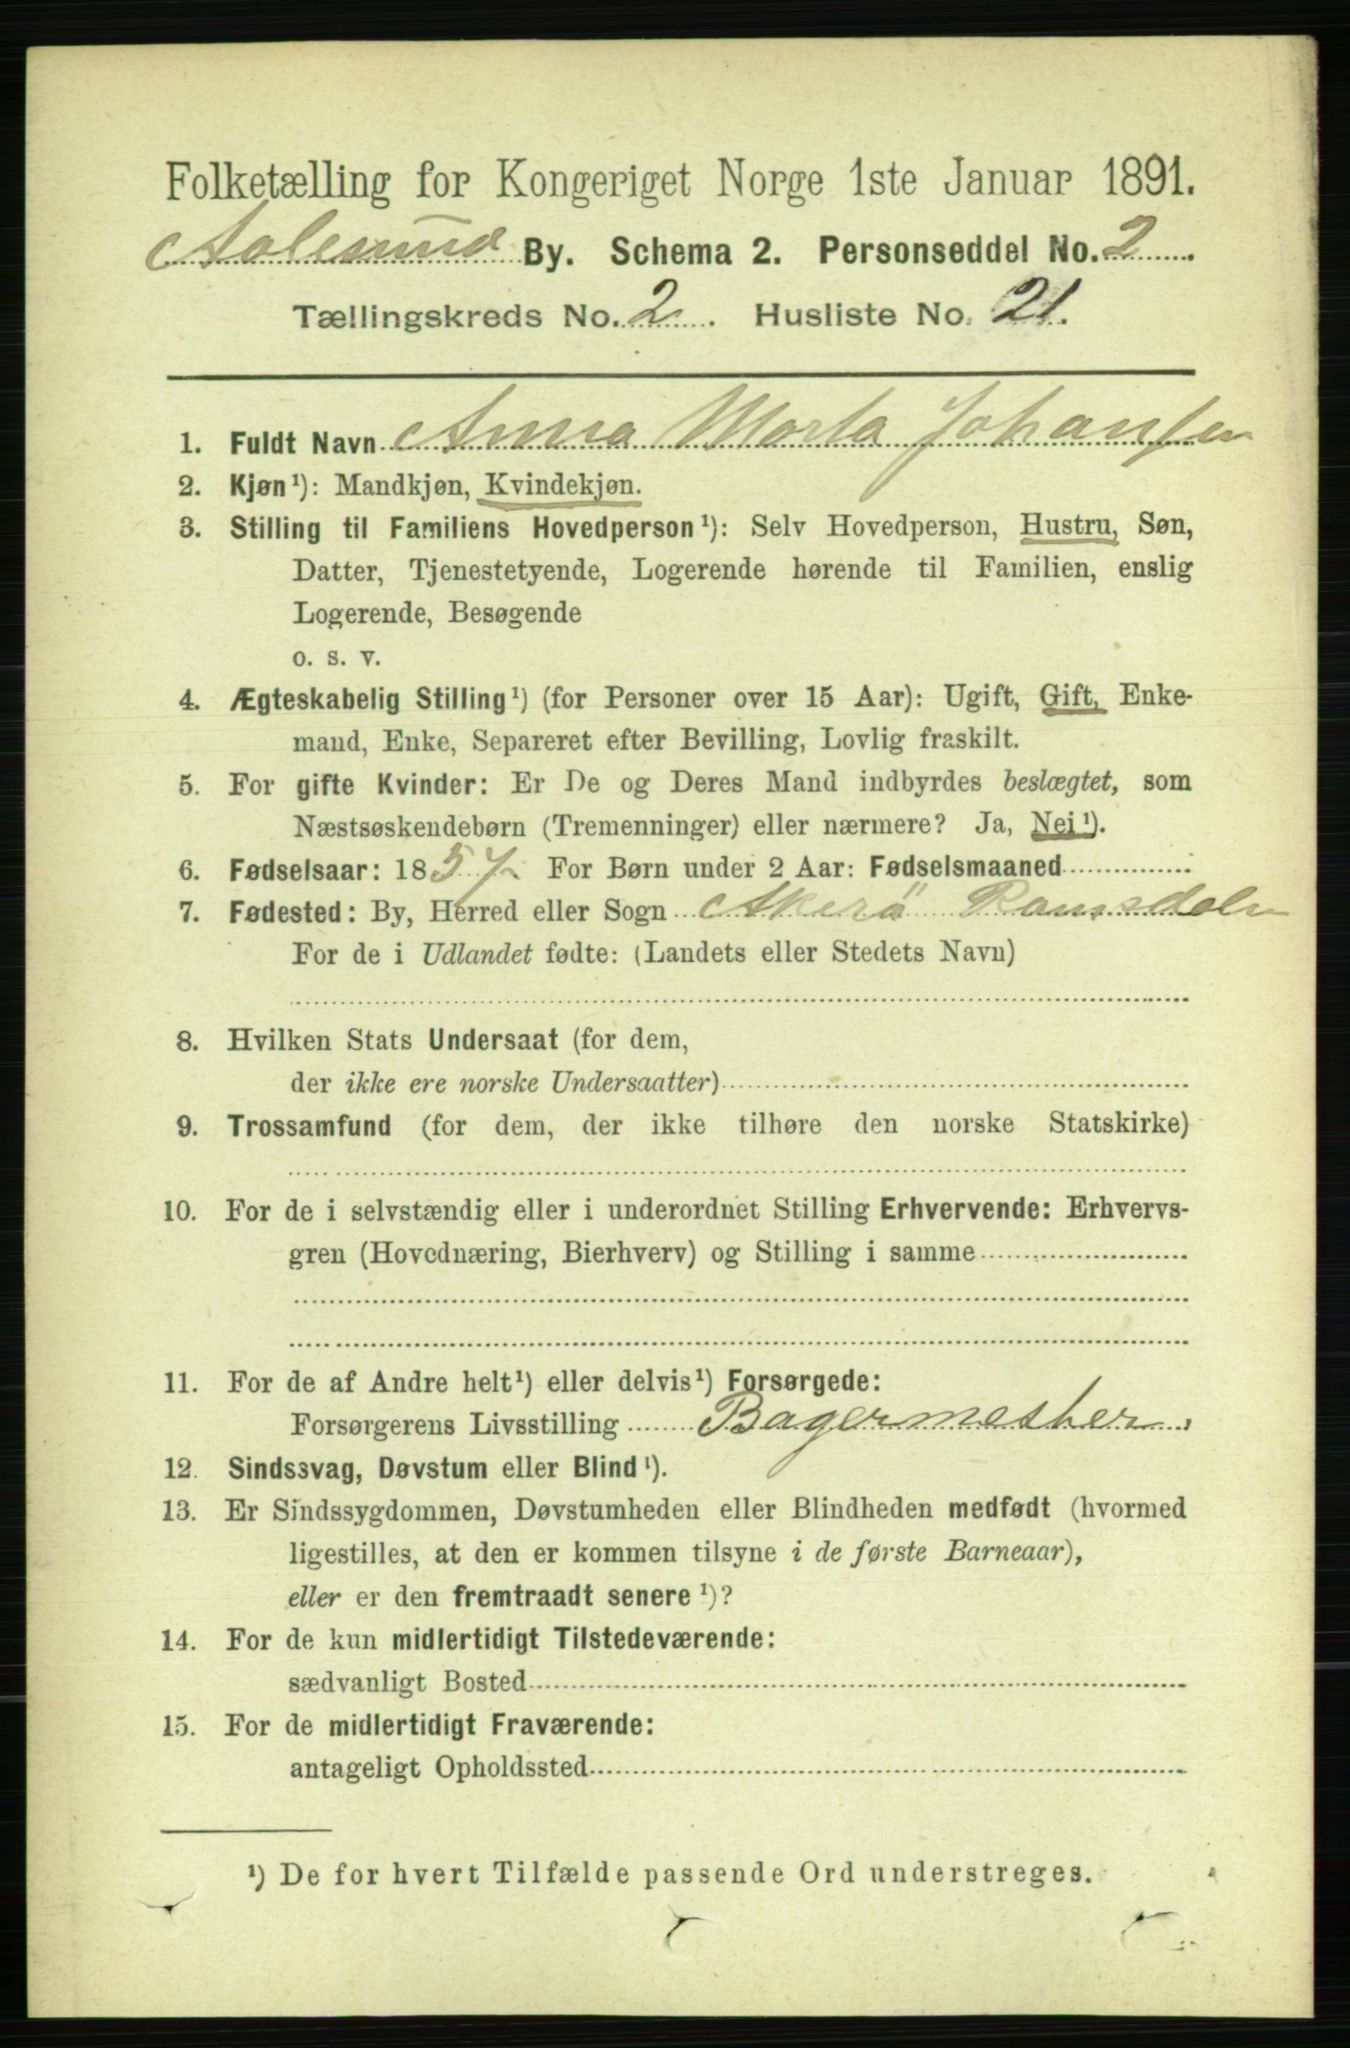 Folketælling for Kongeriget Norge 1ste Januar 1891.
Aalesund By. Schema 2. Personseddel No. 2
Tællingskreds No. 2. Husliste No. 21.
1. Fuldt Navn Anna Marta Johansen
2. Kjøn¹): Mandkjøn, Kvindekjøn.
3. Stilling til Familiens Hovedperson¹): Selv Hovedperson, Hustru, Søn,
Datter, Tjenestetyende, Logerende hørende til Familien, enslig
Logerende, Besøgende
o. s. v.
4. Ægteskabelig Stilling¹) (for Personer over 15 Aar): Ugift, Gift, Enke-
mand, Enke, Separeret efter Bevilling, Lovlig fraskilt.
5. For gifte Kvinder: Er De og Deres Mand indbyrdes beslægtet, som
Næstsøskendebørn (Tremenninger) eller nærmere? Ja, Nei¹).
6. Fødselsaar: 1857 For Børn under 2 Aar: Fødselsmaaned
7. Fødested: By, Herred eller Sogn Akerö Romsdalen
For de i Udlandet fødte: (Landets eller Stedets Navn)
8. Hvilken Stats Undersaat (for dem,
der ikke ere norske Undersaatter)
9. Trossamfund (for dem, der ikke tilhøre den norske Statskirke)
10. For de i selvstændig eller i underordnet Stilling Erhvervende: Erhvervs-
gren (Hovednæring, Bierhverv) og Stilling i samme
11. For de af Andre helt¹) eller delvis¹) Forsørgede:
Forsørgerens Livsstilling Bagermester
12. Sindssvag, Døvstum eller Blind¹).
13. Er Sindssygdommen, Døvstumheden eller Blindheden medfødt (hvormed
ligestilles, at den er kommen tilsyne i de første Barneaar),
eller er den fremtraadt senere¹)?
14. For de kun midlertidigt Tilstedeværende:
sædvanligt Bosted
15. For de midlertidigt Fraværende:
antageligt Opholdssted
¹) De for hvert Tilfælde passende Ord understreges.